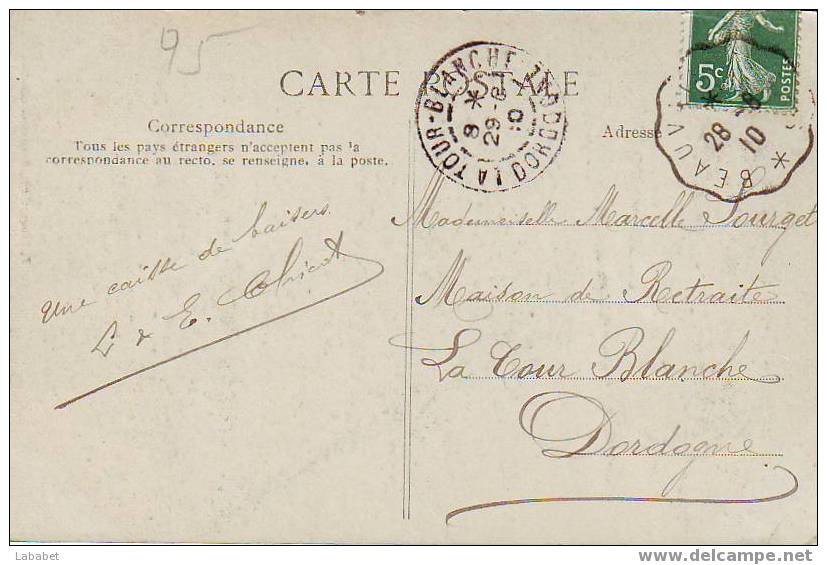 95
CARTE POSTALE
Correspondance
Tous les pays étrangers n'acceptent pas la
correspondance au recto, se renseigner, à la poste.
Une caisse de baisers
L & E. Chicot
LA TOUR-BLANCHE DORDOGNE
8 *
29
10
5c
POSTES
BEAUV
28 8
10
Adresse
Mademoiselle Marcelle Sourget
Maison de Retraite
La Tour Blanche
Dordogne
Lababet
delcampe.net